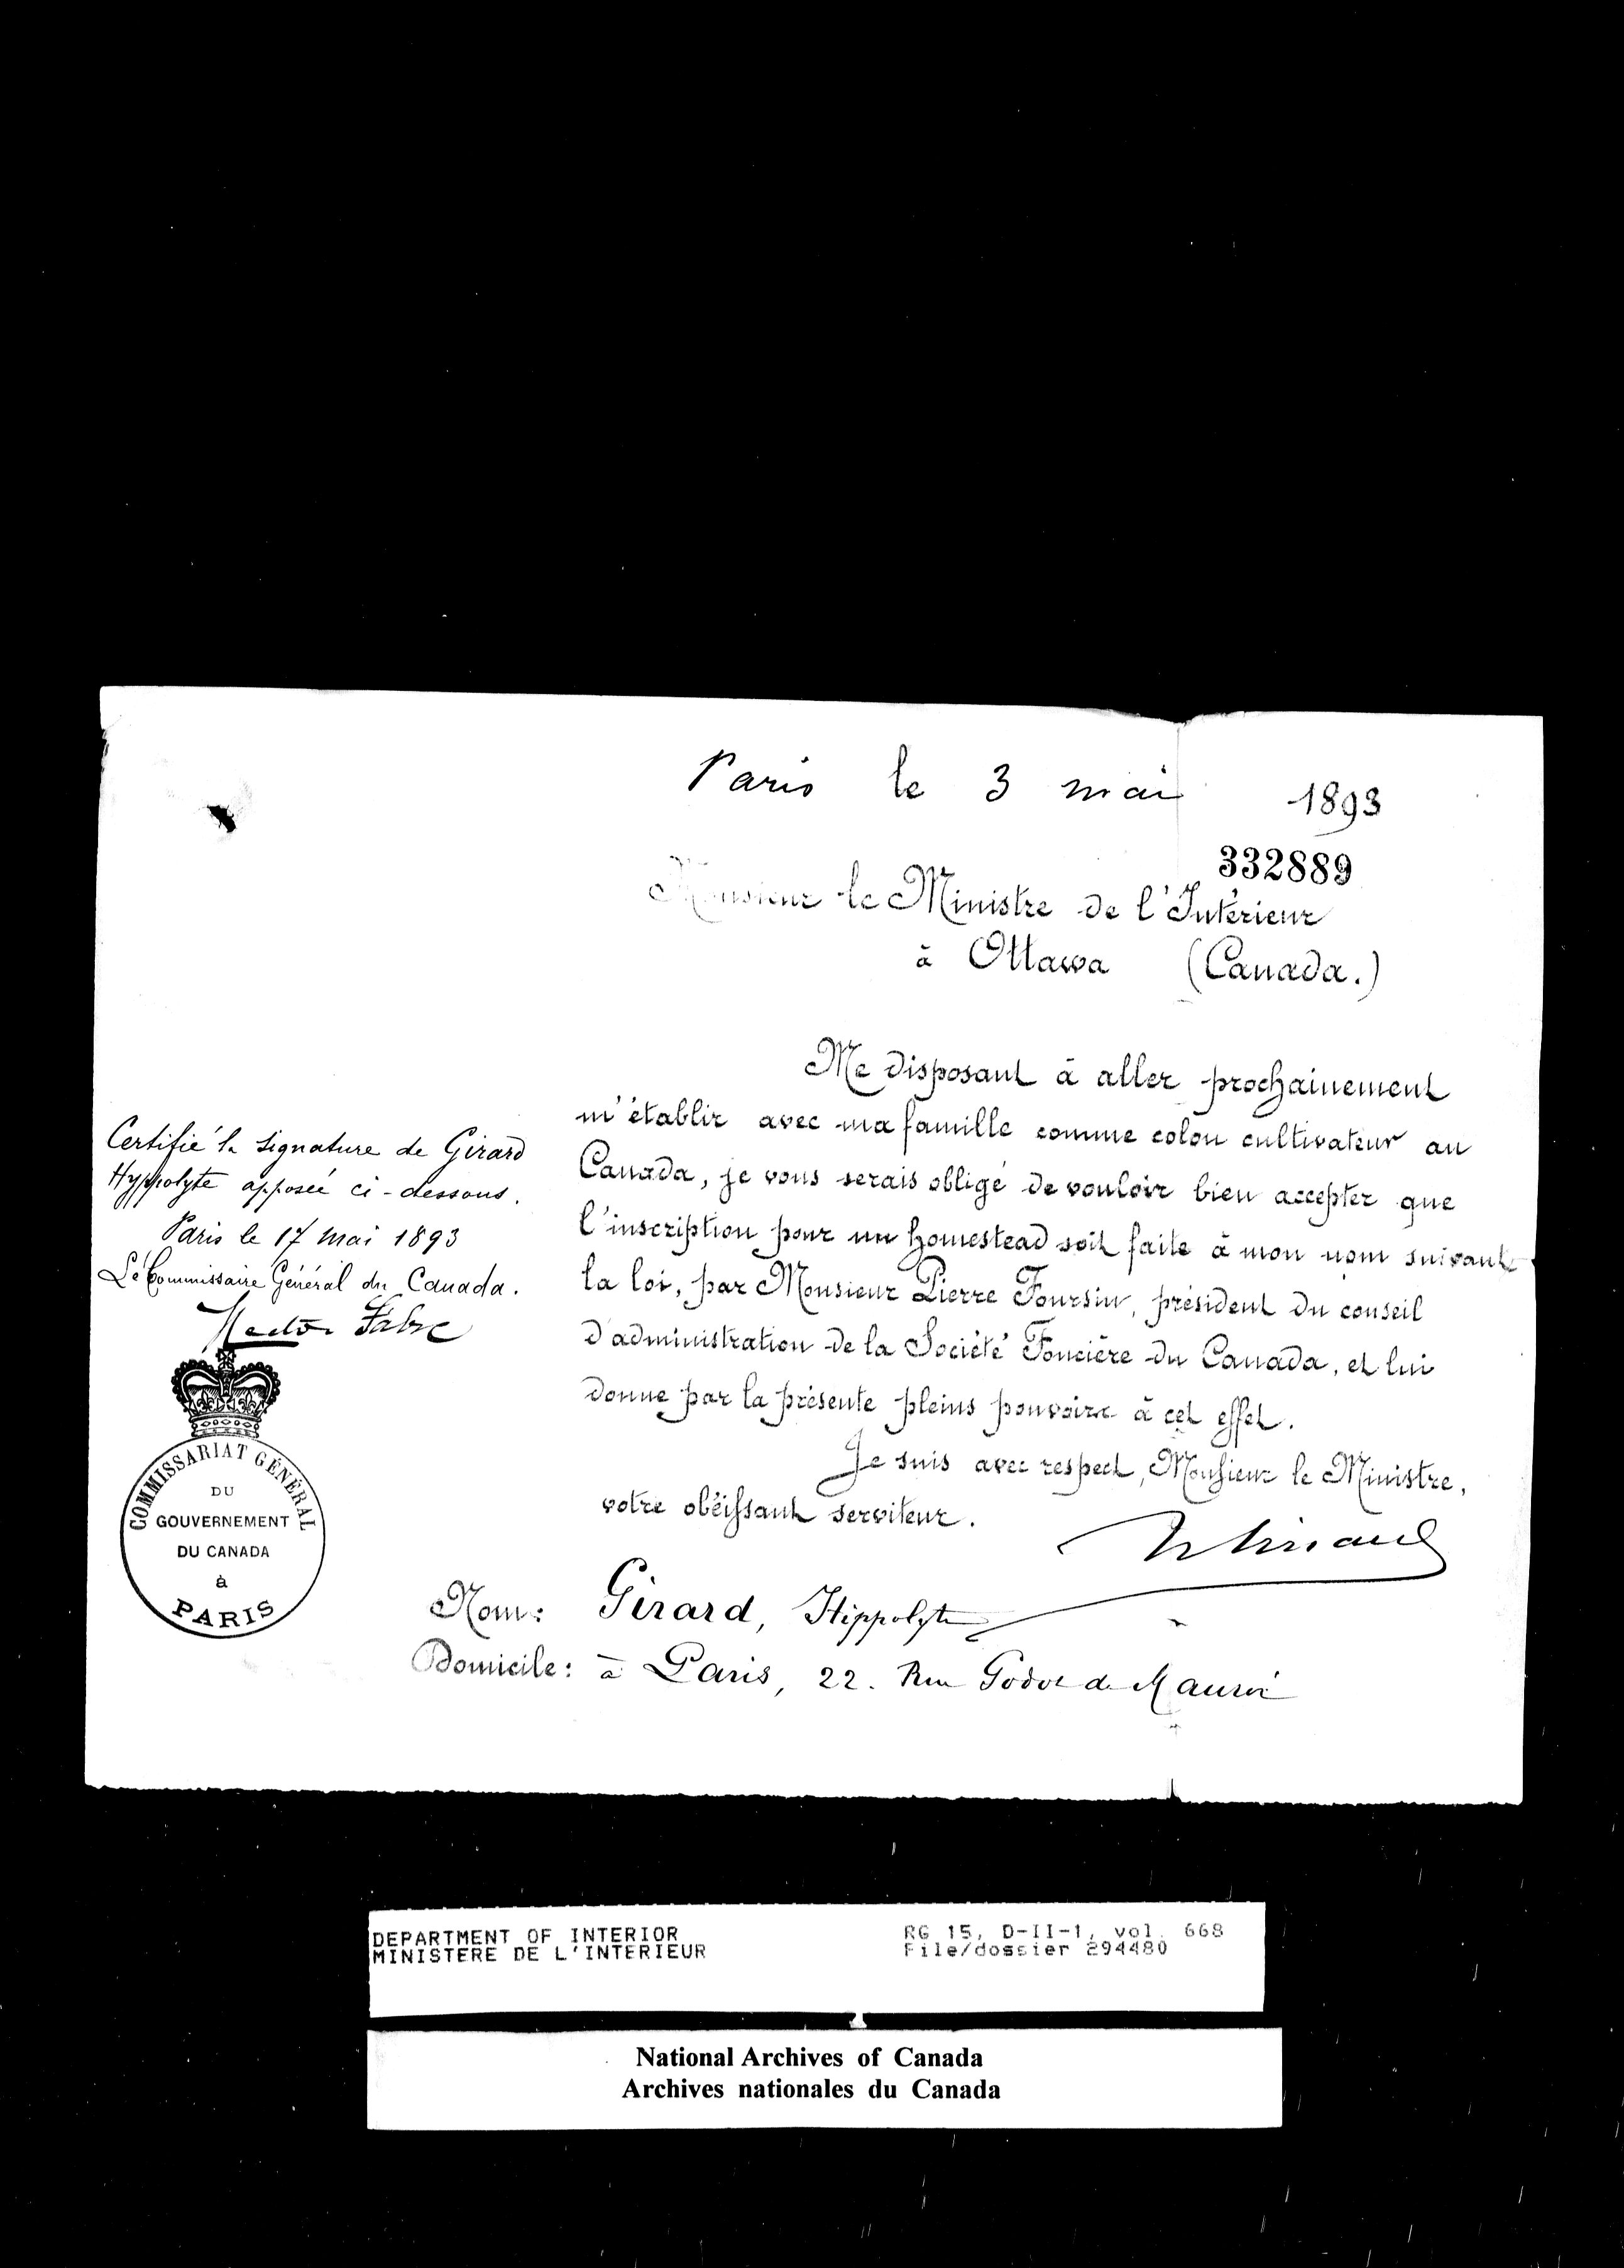 Paris le 3 mai 1893
332889
Monsieur le Ministre de l'Intérieur
à Ottawa (Canada.)
Me disposant à aller prochainement
m'établir avec ma famille comme colon cultivateur au
Canada, je vous serais obligé de vouloir bien accepter que
l'inscription pour un homestead soit faite à mon nom suivant
la loi, par Monsieur Pierre Foursin, président du conseil
d'administration de la Société Foncière du Canada, et lui
donne par la présente pleins pouvoirs à cet effet.
Je suis avec respect, Monsieur le Ministre,
votre obéissant serviteur.
Certifié la signature de Girard
Hyppolyte apposée ci-dessous.
Paris le 17 mai 1893
Le Commissaire Général du Canada.
Hector Fabre
COMMISSARIAT GÉNÉRAL
DU
GOUVERNEMENT
DU CANADA
à
PARIS
Nom: Girard, Hippolyte
Domicile: à Paris, 22. Rue Godot de Mauroi
DEPARTMENT OF INTERIOR
MINISTERE DE L'INTERIEUR
RG 15, D-II-1, vol. 668
File/dossier 294480
National Archives of Canada
Archives nationales du Canada